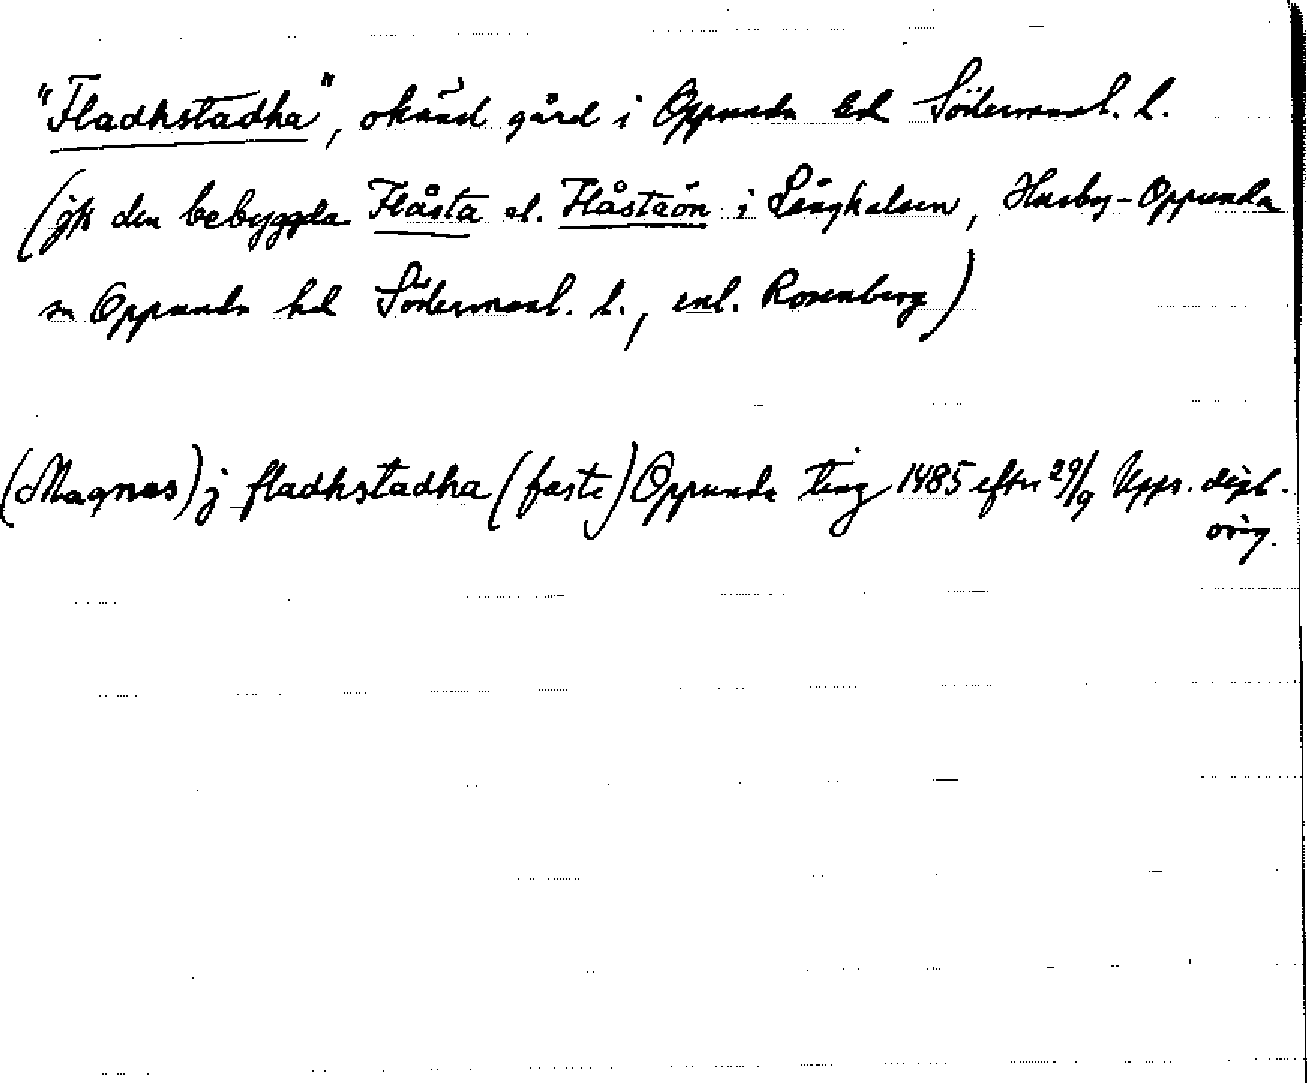 "Fladhstadha", okänd gård i Oppunda hd Södermanl. l.
(jfr den bebyggda Flåsta el. Flåstaön i Långhalsen, Husby-Oppunda
sn Oppunda hd Södermanl. l., enl. Rosenberg)
(Magnes) j fladhstadha (faste) Oppunda ting 1485 efter 29/9 Upps. dipl.
orig.